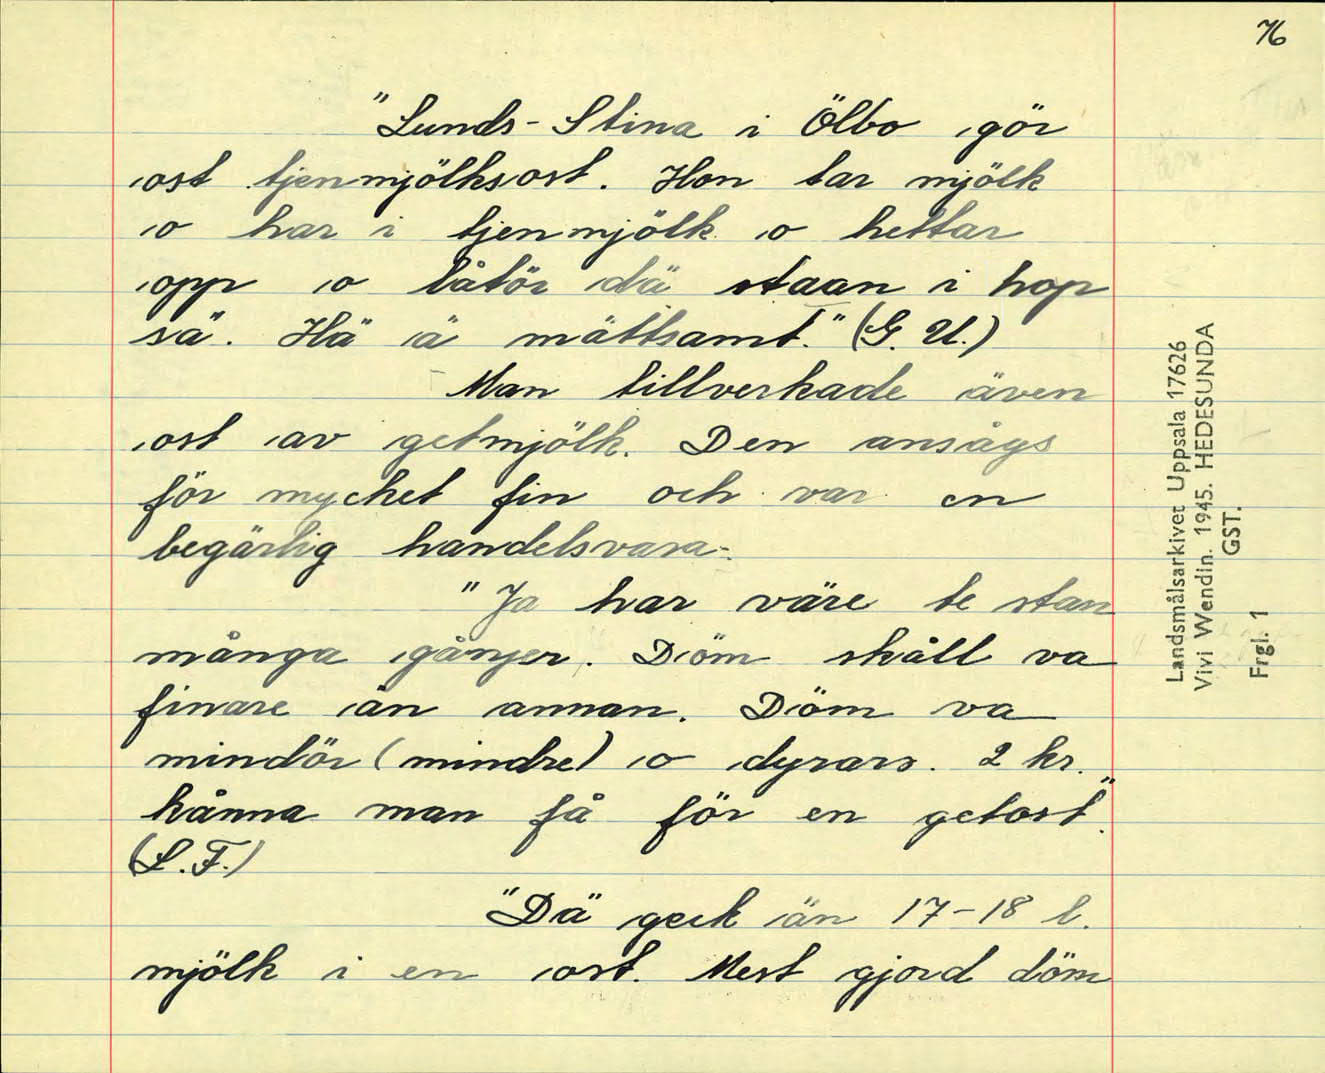 76
"Lunds-Stina i Ölbo gör
ost tjenmjölksost. Hon tar mjölk
o har i tjenmjölk o hettar
opp o låtör dä staan i hop
sä". Hä ä mättsamt." (G. U.)
Man tillverkade även
ost av getmjölk. Den ansågs
för mycket fin och var en
begärlig handelsvara.
"Ja har väre te stan
många gånjer. Döm skåll va
finare än annan. Döm va
mindör (mindre) o dyrars. 2 kr.
kånna man få för en getost".
(L. F.)
"Dä geck än 17-18 l.
mjölk i en ost. Mest gjord döm
Landsmålsarkivet Uppsala 17626
Vivi Wendin. 1945. HEDESUNDA
GST.
Frgl. 1